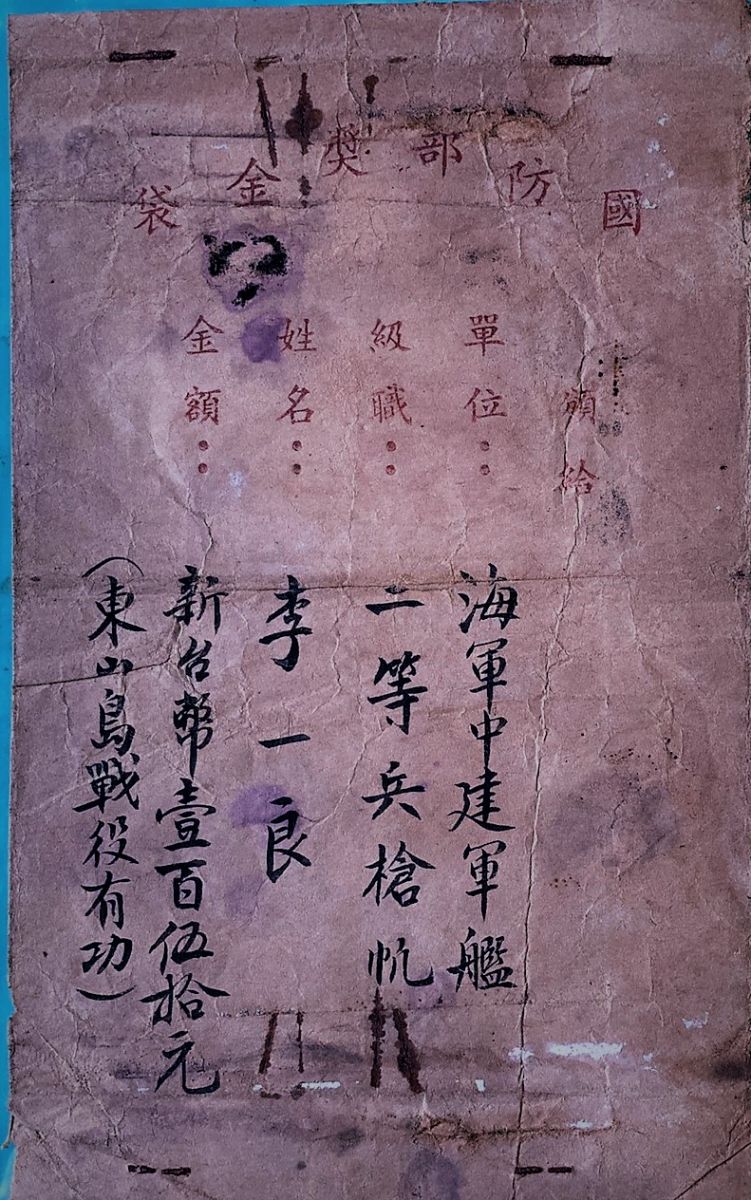 國防部獎金袋
頒給
單位：海軍中建軍艦
級職：二等兵槍帆
姓名：李一良
金額：新台幣壹百伍拾元
（東山島戰役有功）